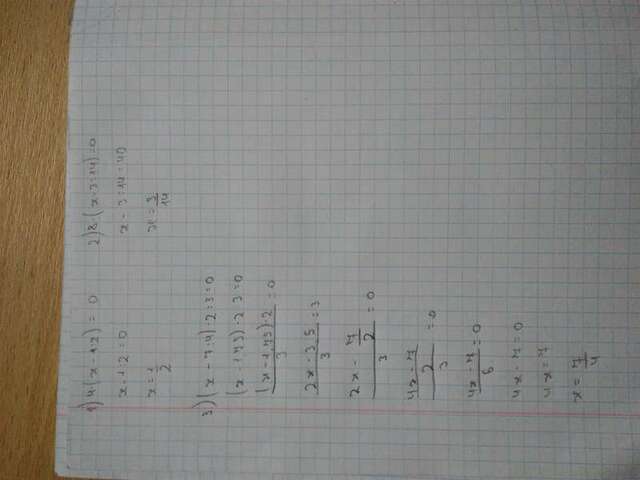 1) 4·(x-1:2) = 0
x-1:2 = 0
x = 1/2
2) 8·(x-3:14)=0
x-3:14=40
x = 3/14
3) (x-7:4)·2:3=0
(x-1,75)·2 3=0
(x-1,75)·2/3 = 0
2x-3,5/3 = 3
2x - 7/2/3 = 0
4x-7/2/3 = 0
4x-7/6 = 0
4x-7=0
4x=7
x = 7/4